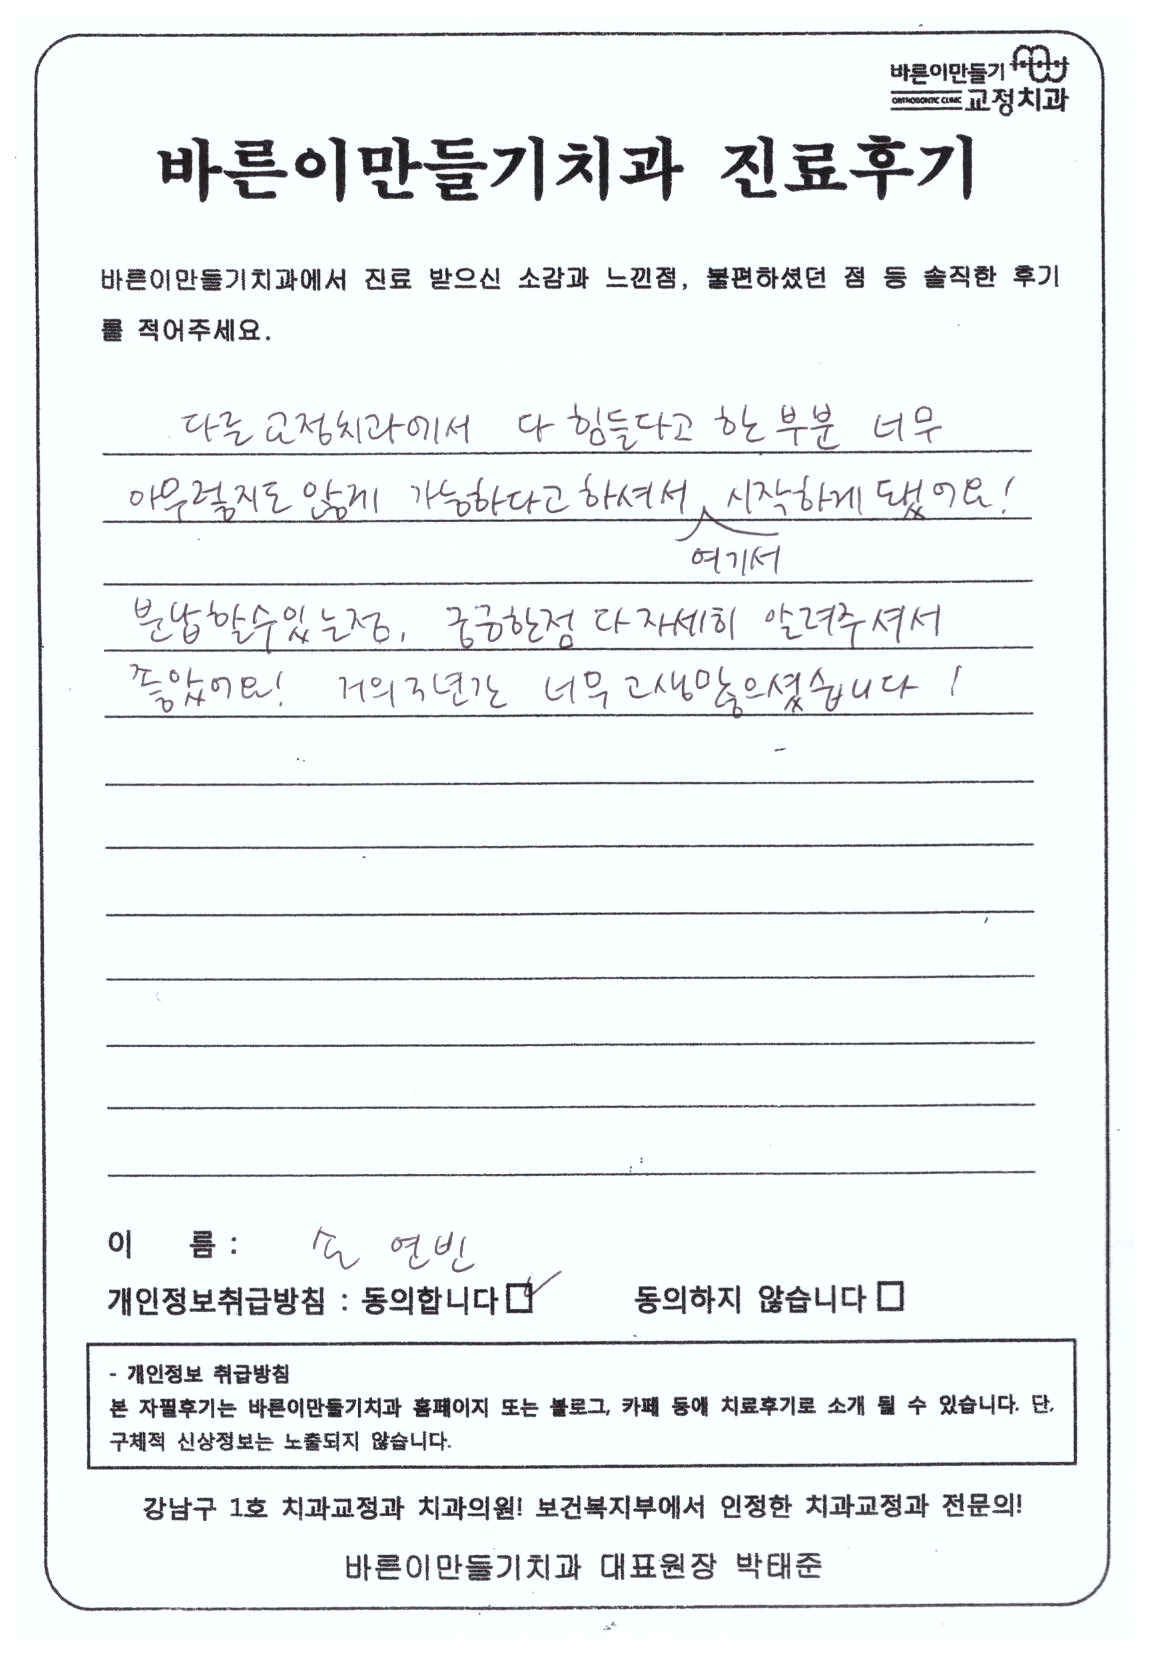 바른이만들기
ORTHODONTIC CLINIC 교정치과
바른이만들기치과 진료후기
바른이만들기치과에서 진료 받으신 소감과 느낀점, 불편하셨던 점 등 솔직한 후기
를 적어주세요.
다른 교정치과에서 다 힘들다고 한 부분 너무
아무렇지도 않게 가능하다고 하셔서 시작하게 됐어요!
여기서
분납할수있는점, 궁금한점 다 자세히 알려주셔서
좋았어요! 거의 3년간 너무 고생많으셨습니다!
이 름 : 손 연빈
개인정보취급방침 : 동의합니다 동의하지 않습니다
- 개인정보 취급방침
본 자필후기는 바른이만들기치과 홈페이지 또는 블로그, 카페 등에 치료후기로 소개 될 수 있습니다. 단,
구체적 신상정보는 노출되지 않습니다.
강남구 1호 치과교정과 치과의원! 보건복지부에서 인정한 치과교정과 전문의!
바른이만들기치과 대표원장 박태준